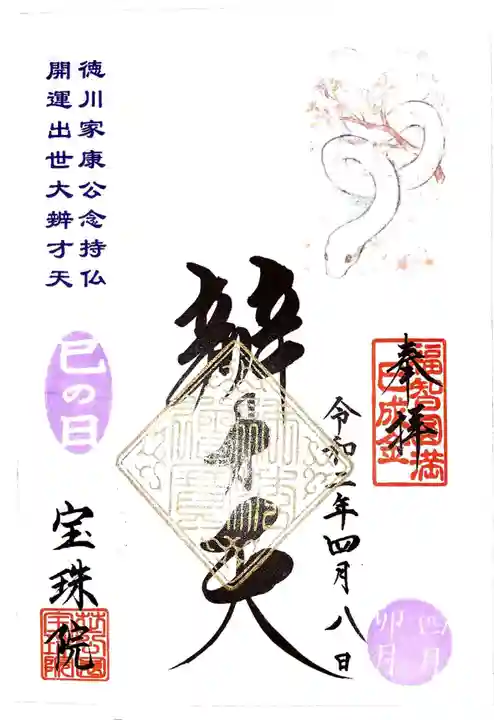 徳川家康公念持仏
開運出世大辨才天
奉拝
福智円満
巳成金
令和二年四月八日
四月
卯月
辨才天
巳の日
宝珠院